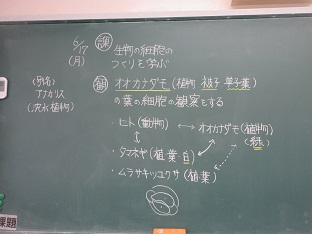 6/17
(月)
課 生物の細胞の
つくりを学ぶ
(別名)
アナカリス
(沈水植物)
観 オオカナダモ(植物 被子 単子葉)
の葉の細胞の観察をする
・ヒト(動物) ↔ オオカナダモ(植物)
(緑)
・タマネギ(植 葉 白)
・ムラサキツユクサ(植 葉)
課題